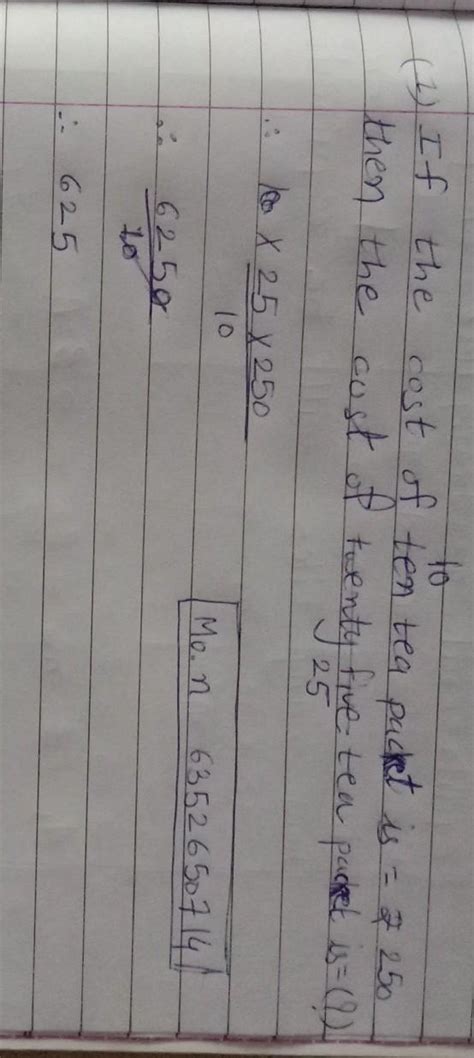 (1) If the cost of ten tea packet is = ₹ 250
10
then the cost of twenty five tea packet is = (?)
25
∴ 25 × 250
10
∴ 6250
10
∴ 625
Mo. n 6352650714